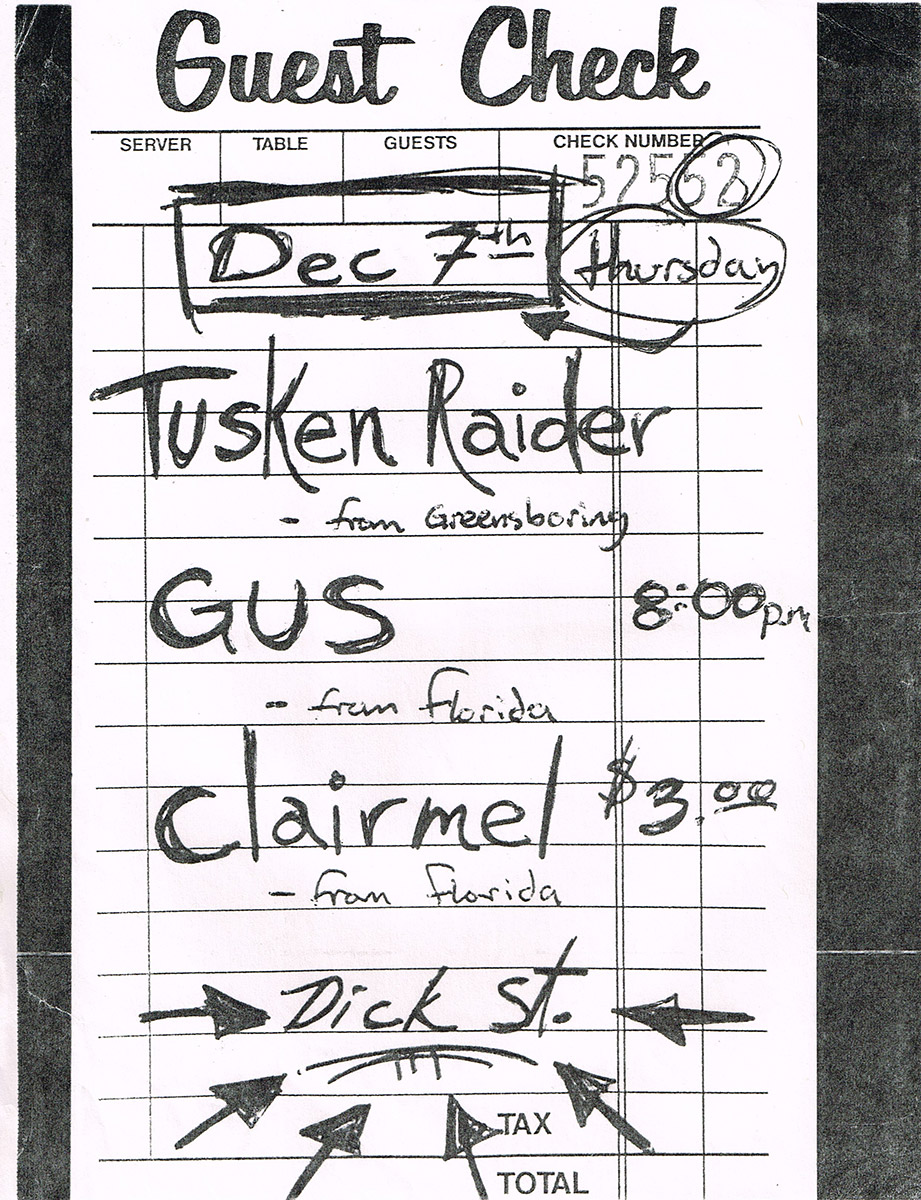 Guest Check
SERVER TABLE GUESTS CHECK NUMBER
52552
Dec 7th Thursday
Tusken Raider
- from Greensboring
GUS 8:00pm
- from florida
Clairmel $3.00
- from florida
Dick St.
TAX
TOTAL